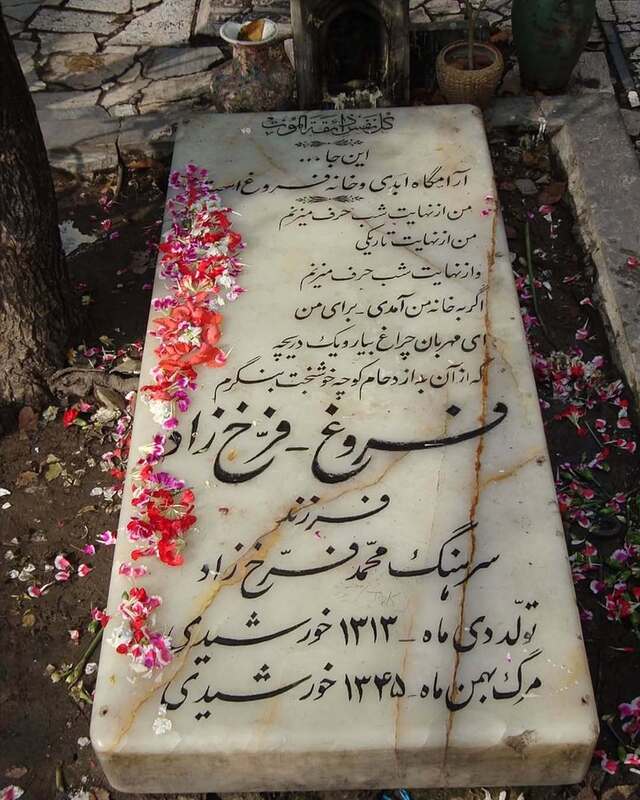 كل نفس ذائقة الموت
این جا ...
آرامگاه ابدی و خانه فروغ است
من از نهایت شب حرف میزنم
من از نهایت تاریکی
و از نهایت شب حرف میزنم
اگر به خانه من آمدی ـ برای من
ای مهربان چراغ بیار و یک دریچه
که از آن به ازدحام کوچه خوشبخت بنگرم
فروغ ـ فرّخ زاد
فرزند
سرهنگ محمّد فرّخ زاد
تولّد دی ماه ـ ۱۳۱۳ خورشیدی
مرگ بهمن ماه ـ ۱۳۴۵ خورشیدی